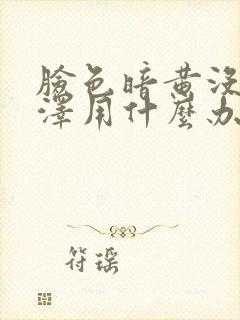 臉色暗黃沒
澤用什麼办
符瑶